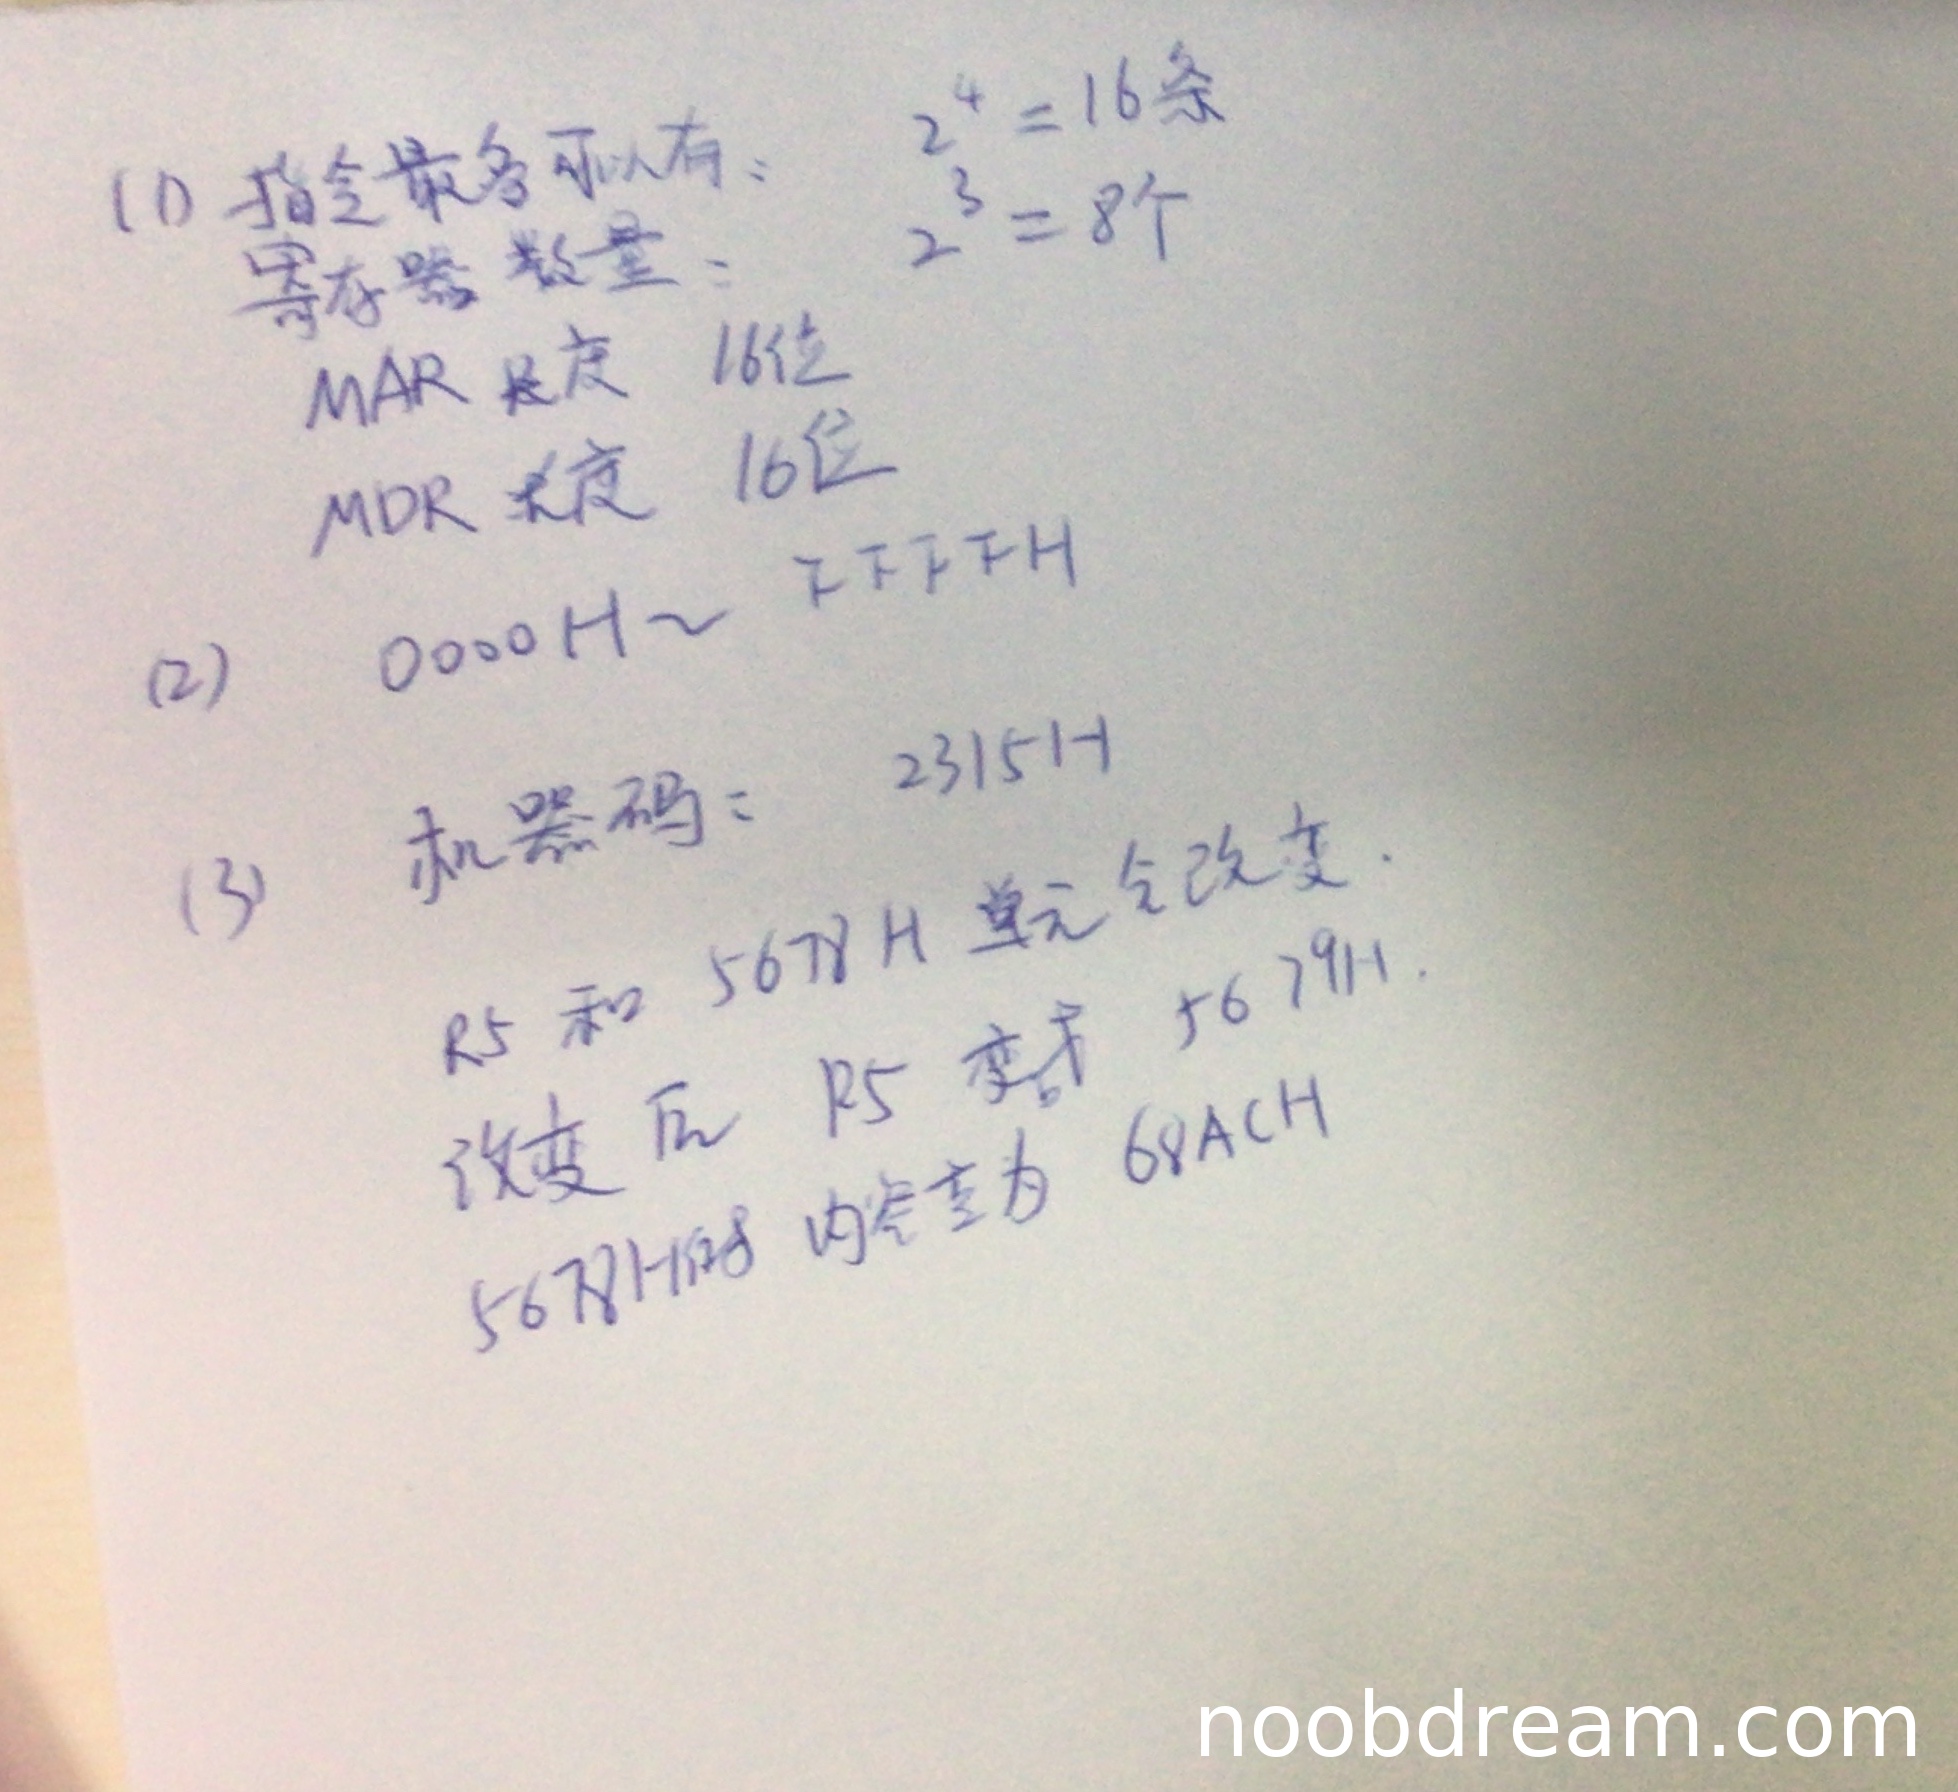 (1) 指令最多可以有: 2^4 = 16条
寄存器数量: 2^3 = 8个
MAR 长度 16位
MDR 长度 16位
(2) 0000H ~ FFFFH
(3) 机器码: 2315H
R5 和 5678H 单元会改变.
改变后 R5 变成 5679H.
5678H 内容变为 68ACH
noobdream.com